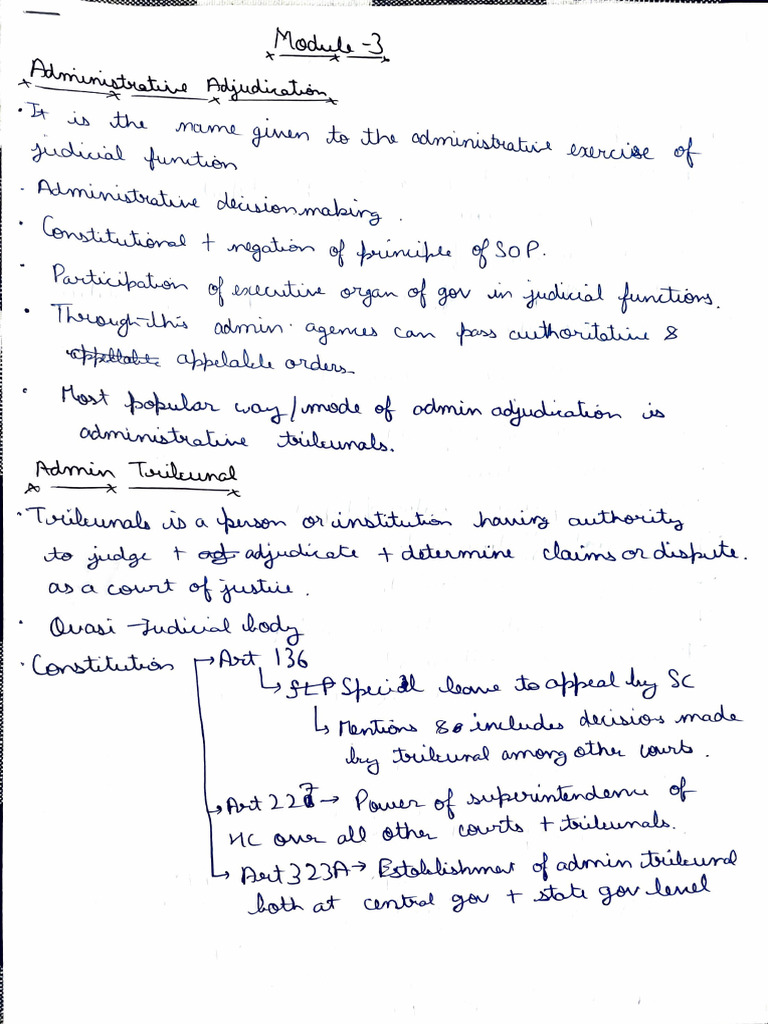 Module-3
Administrative Adjudication
• It is the name given to the administrative exercise of
judicial function
• Administrative decision making.
• Constitutional + negation of principle of SOP.
• Participation of executive organ of gov in judicial functions.
• Through this admin. agences can pass authoritative &
appellable appelable orders.
• Most popular way/mode of admin adjudication is
administrative tribunals.
Admin Tribunal
• Tribunals is a person or institution having authority
to judge + adj adjudicate + determine claims or dispute.
as a court of justice.
• Quasi-Judicial body
• Constitution → Art 136
↳ SLP Special leave to appeal by SC
↳ Mentions & includes decision made
by tribunal among other courts.
→ Art 227 → Power of superintendence of
HC over all other courts + tribunals.
→ Art 323A → Establishment of admin tribunal
both at central gov + state gov level